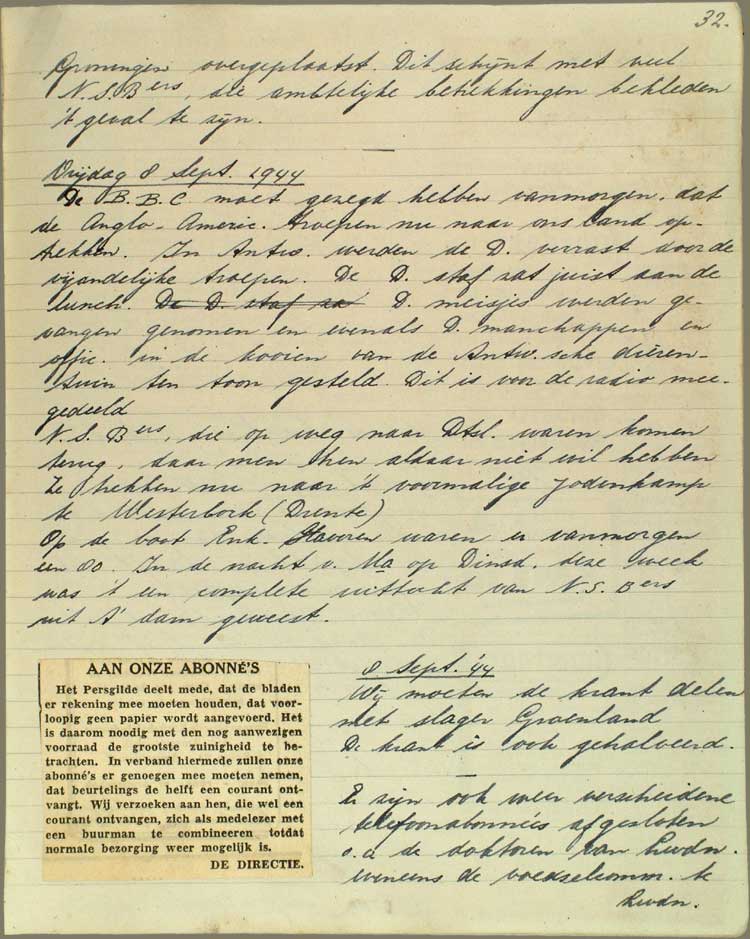 32.
Groningen overgeplaatst. Dit schijnt met veel
N.S.Bers, die ambtelijke betrekkingen bekleden
't geval te zijn.
Vrijdag 8 Sept. 1944
De B.B.C moet gezegd hebben vanmorgen, dat
de Anglo-Americ. troepen nu naar ons land op-
trekken. In Antw. werden de D. verrast door de
vijandelijke troepen. De D. staf zat juist aan de
lunch. De D. staf za D. meisjes werden ge-
vangen genomen en evenals D. manschappen en
offic. in de kooien van de Antw.sche dieren-
tuin ten toon gesteld. Dit is voor de radio mee-
gedeeld
N.S.Bers, die op weg naar Dtsl. waren komen
terug, daar men hen aldaar niet wil hebben
Ze trekken nu naar 't voormalige jodenkamp
te Westerbork (Drente)
Op de boot Enk. Stavoren waren er vanmorgen
een 80. In de nacht v. Ma op Dinsd. deze week
was 't een complete uittocht van N.S.Bers
uit A'dam geweest.
AAN ONZE ABONNÉ'S
Het Persgilde deelt mede, dat de bladen
er rekening mee moeten houden, dat voor-
loopig geen papier wordt aangevoerd. Het
is daarom noodig met den nog aanwezigen
voorraad de grootste zuinigheid te be-
trachten. In verband hiermede zullen onze
abonné's er genoegen mee moeten nemen,
dat beurtelings de helft een courant ont-
vangt. Wij verzoeken aan hen, die wel een
courant ontvangen, zich als medelezer met
een buurman te combineeren totdat
normale bezorging weer mogelijk is.
DE DIRECTIE.
8 Sept. '44
Wij moeten de krant delen
met slager Groenland
De krant is ook gehalveerd.
Er zijn ook weer verscheidene
telefoonabonnés afgesloten
o.a de doktoren van Lwdn.
eveneens de voedselcomm. te
Lwdn.